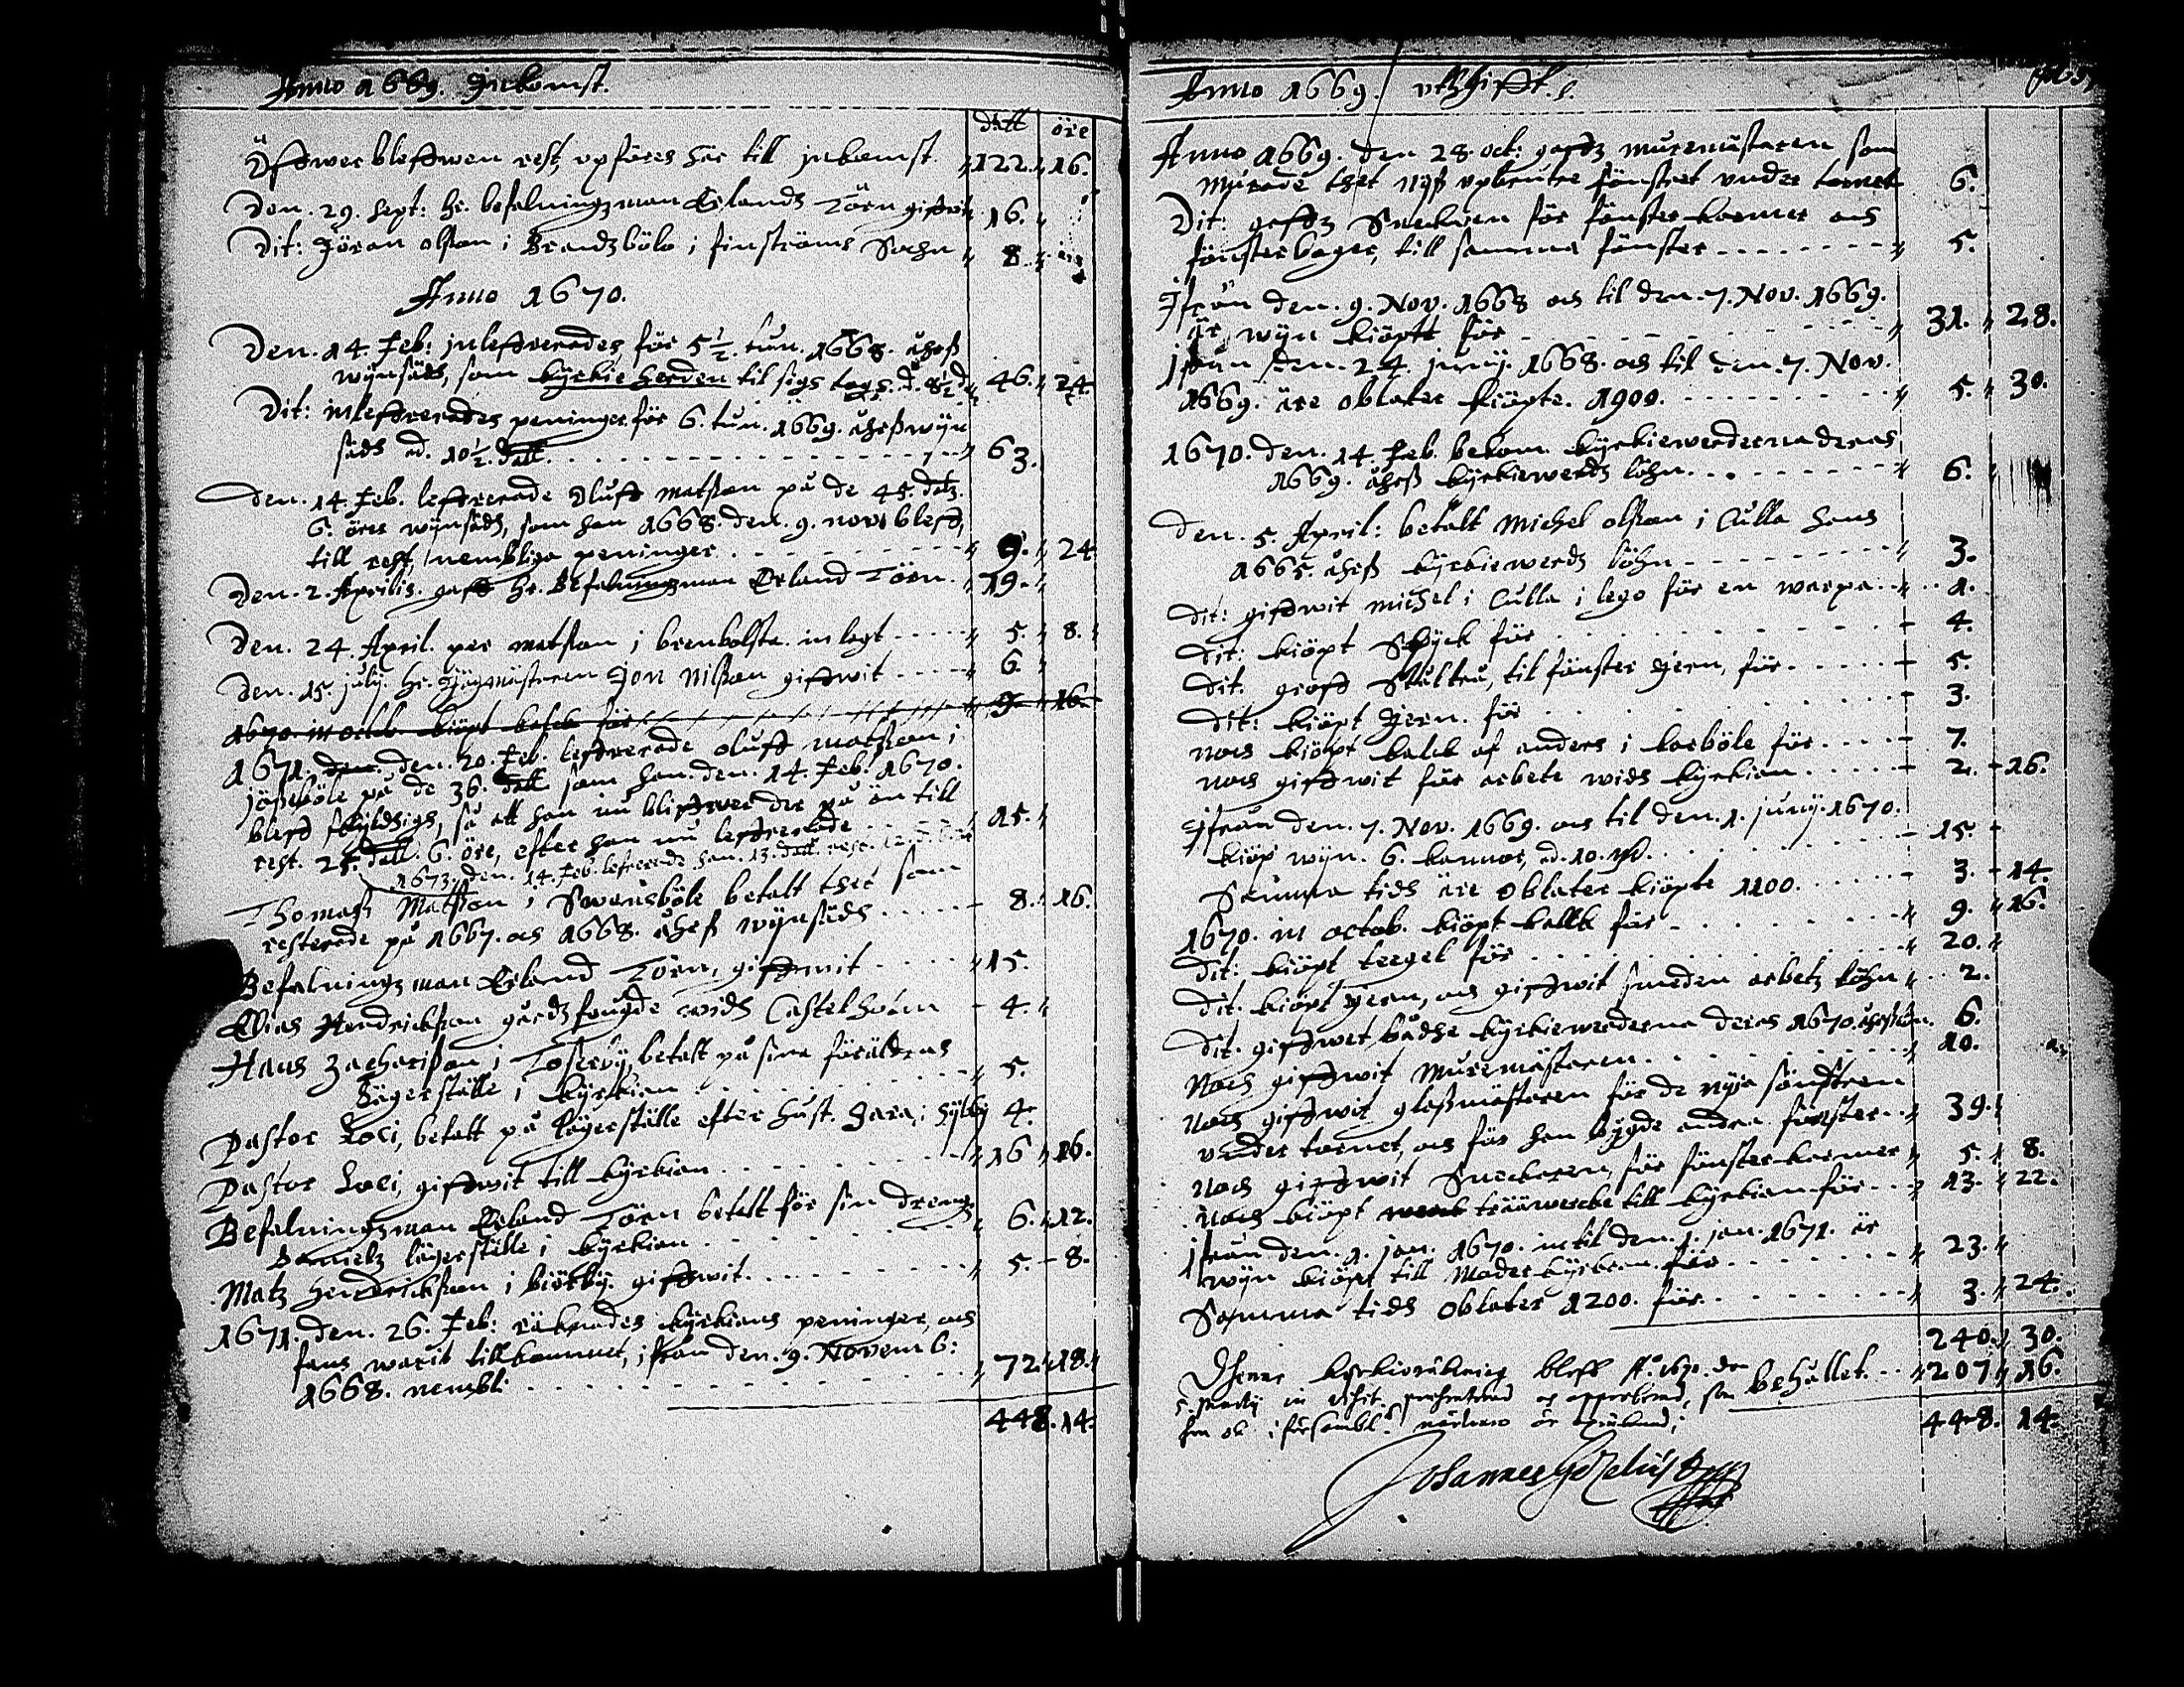 Anno 1669. Inkomst.
datt öre
Öfwer blefwen rest, vpföres här till inkomst. 122. 16.
Den. 29. Sept: hr. befalningzman Erlandh Törn gifwit 16.
Dit: Jöran olsson i Brendzböle i finströms Sochn 8.
Anno 1670.
Den. 14. Feb: inlefwerades, för 5½. tun. 1668. åhrß
wijnsädh, som kyrkie herden til sigh togh. 8½ d. 46. 24.
Dit: inlefwerades peninger för 6. tun. 1669. åhrß wijn
sädh ad. 10½. datt. 63.
Den. 14. Feb. lefwerade Oluff matsson på de 45. datt.
6. öre wijnsädh, som han 1668. den. 9. nov: bleff,
till rest, nembliga peninger. 9. 24
Den. 2. Aprilis. gaff hr. Befalningzman Erland Törn. 19.
Den. 24. April. per matsson i brenbolsta inlagt 5. 8.
Den. 15. julij. hr. Jägmästaren Jon Nilsson gifwit 6.
1670. in octob. kiöpt kalck för 9. 16.
1671. den. den. 20. Feb. lefwerade oluff matsson i
jässeböle på de 36. datt som han. den. 14. Feb. 1670.
bleff skyldigh, så att han nu blifwer der på än till
rest. 25. datt. 6. öre, efter han nu lefwerade 15.
1673. den. 14. Feb. lefwerade han. 13. datt. rest. 12. d.
Thomaß Matsson i Swensböle betalt thet som
resterade på 1667. och 1668. åhrß wijnsädh 8. 16.
Befalningz man Erland Törn, gifwit 15.
Elias Hendricksson gårdz fougde widh Castelholm 4.
Hans Zacharisson i Tosarby, betalt på sina föräldras
Lägerställe i kyrkian 5.
Pastor Loci, betalt på lägerställe efter hust. Zara i hylby 4.
Pastor Loci, gifwit till kyrkian 16. 16.
Befalningzman Erland Törn betalt för sin drengz
Danielz lägerställe i kyrkian 6. 12.
Matz Hendricksson i biörkby. gifwit. 5. 8.
1671. den. 26. Feb: räknades kyrkians peninger, och
fans warit tillkommet, ifrån den. 9. Novemb:
1668. nembli. 72. 18.
448. 14.
Anno 1669. vthgifft.
Anno 1669. den 28. oct: gafz muremästaren som
murade thet nyß vpbrutne fönstret vnder tornet 6.
Dit: gafz Snickren för fönster karmer och
fönsterboger, till samma fönster 5.
Ifrån den. 9. Nov. 1668 och til den. 7. Nov. 1669.
är, wijn kiöpt för 31. 28.
ifrån den. 24. junij. 1668. och til den. 7. Nov.
1669. äre oblater kiöpte. 1900. 5. 30.
1670. den. 14. Feb. bekom kyrkiewerderna deras
1669. åhrß kyrkiewerdz löhn. 6.
Den. 5. April: betalt Michel olsson i Culla hans
1665. åhrß kyrkiewerdz löhn 3.
Dit: gifwit michel i Culla i lego för en warpa 1.
Dit: kiöpt för 4.
Dit. groff til fönster jern, för. 5.
Dit: kiöpt jern. för 3.
noch kiöpt kalck af anders i korböle för 7.
noch gifwit för arbete widh kyrkian 2. 16.
Ifrån den. 7. Nov. 1669. och til den. 1. junij. 1670.
kiöpt wijn. 6. kannor, ad. 10. 15.
Samma tidh äre oblater kiöpte 1100. 3. 14.
1670. in octob. kiöpt kallk för 9. 16.
Dit: kiöpt teegel för 20.
Dit. kiöpt jern, och gifwit smeden arbetz löhn 2.
Dit. gifwet både kyrkiewerderna deras 1670. åhrß lön. 6.
Noch gifwit Muremästaren. 10.
Noch gifwit glaßmästaren för de nyja fönstren
vnder tornet, och för han bygde andra fönster 39.
Noch gifwit Snickaren, för fönster karmer 5. 8.
Noch kiöpt trääwercke till kyrkian för 13. 22.
ifrån den. 1. jan. 1670. in til den. 1. jan. 1671. är
wijn kiöpt till Moder kyrkian för 23.
Samma tidh oblater 1200. för. 3. 24.
240. 30.
Denne kyrkioräkning bleff Aº. 1671. den
behållet. 207. 16.
448. 14.
Johannes Gezelius